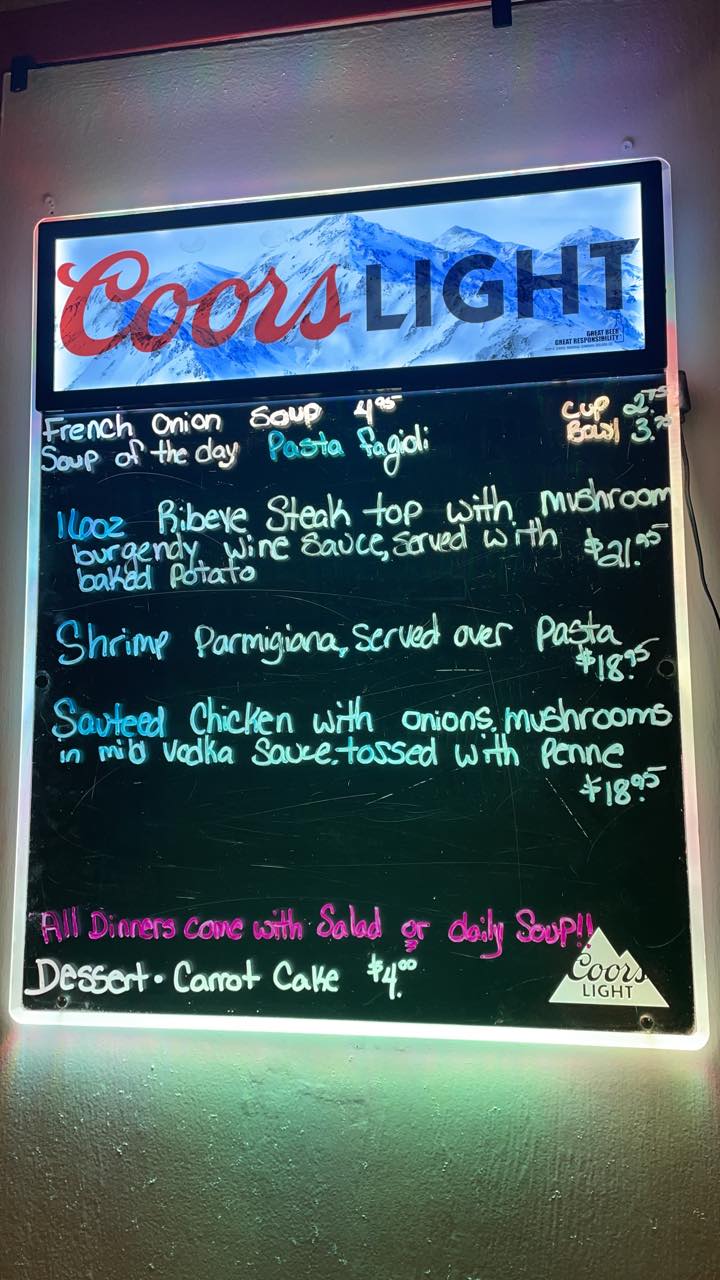 Coors LIGHT
GREAT BEER
GREAT RESPONSIBILITY
French Onion Soup 4.95 Cup 2.75
Soup of the day Pasta fagioli Bowl 3.75
16oz Ribeye Steak top with mushroom
burgendy wine sauce, served with $21.95
baked Potato
Shrimp Parmigiana, served over Pasta
$18.95
Sauteed Chicken with onions, mushrooms
in mild Vodka Sauce. tossed with Penne
$18.95
All Dinners come with Salad or daily Soup!!
Dessert. Carrot Cake $4.00
Coors
LIGHT